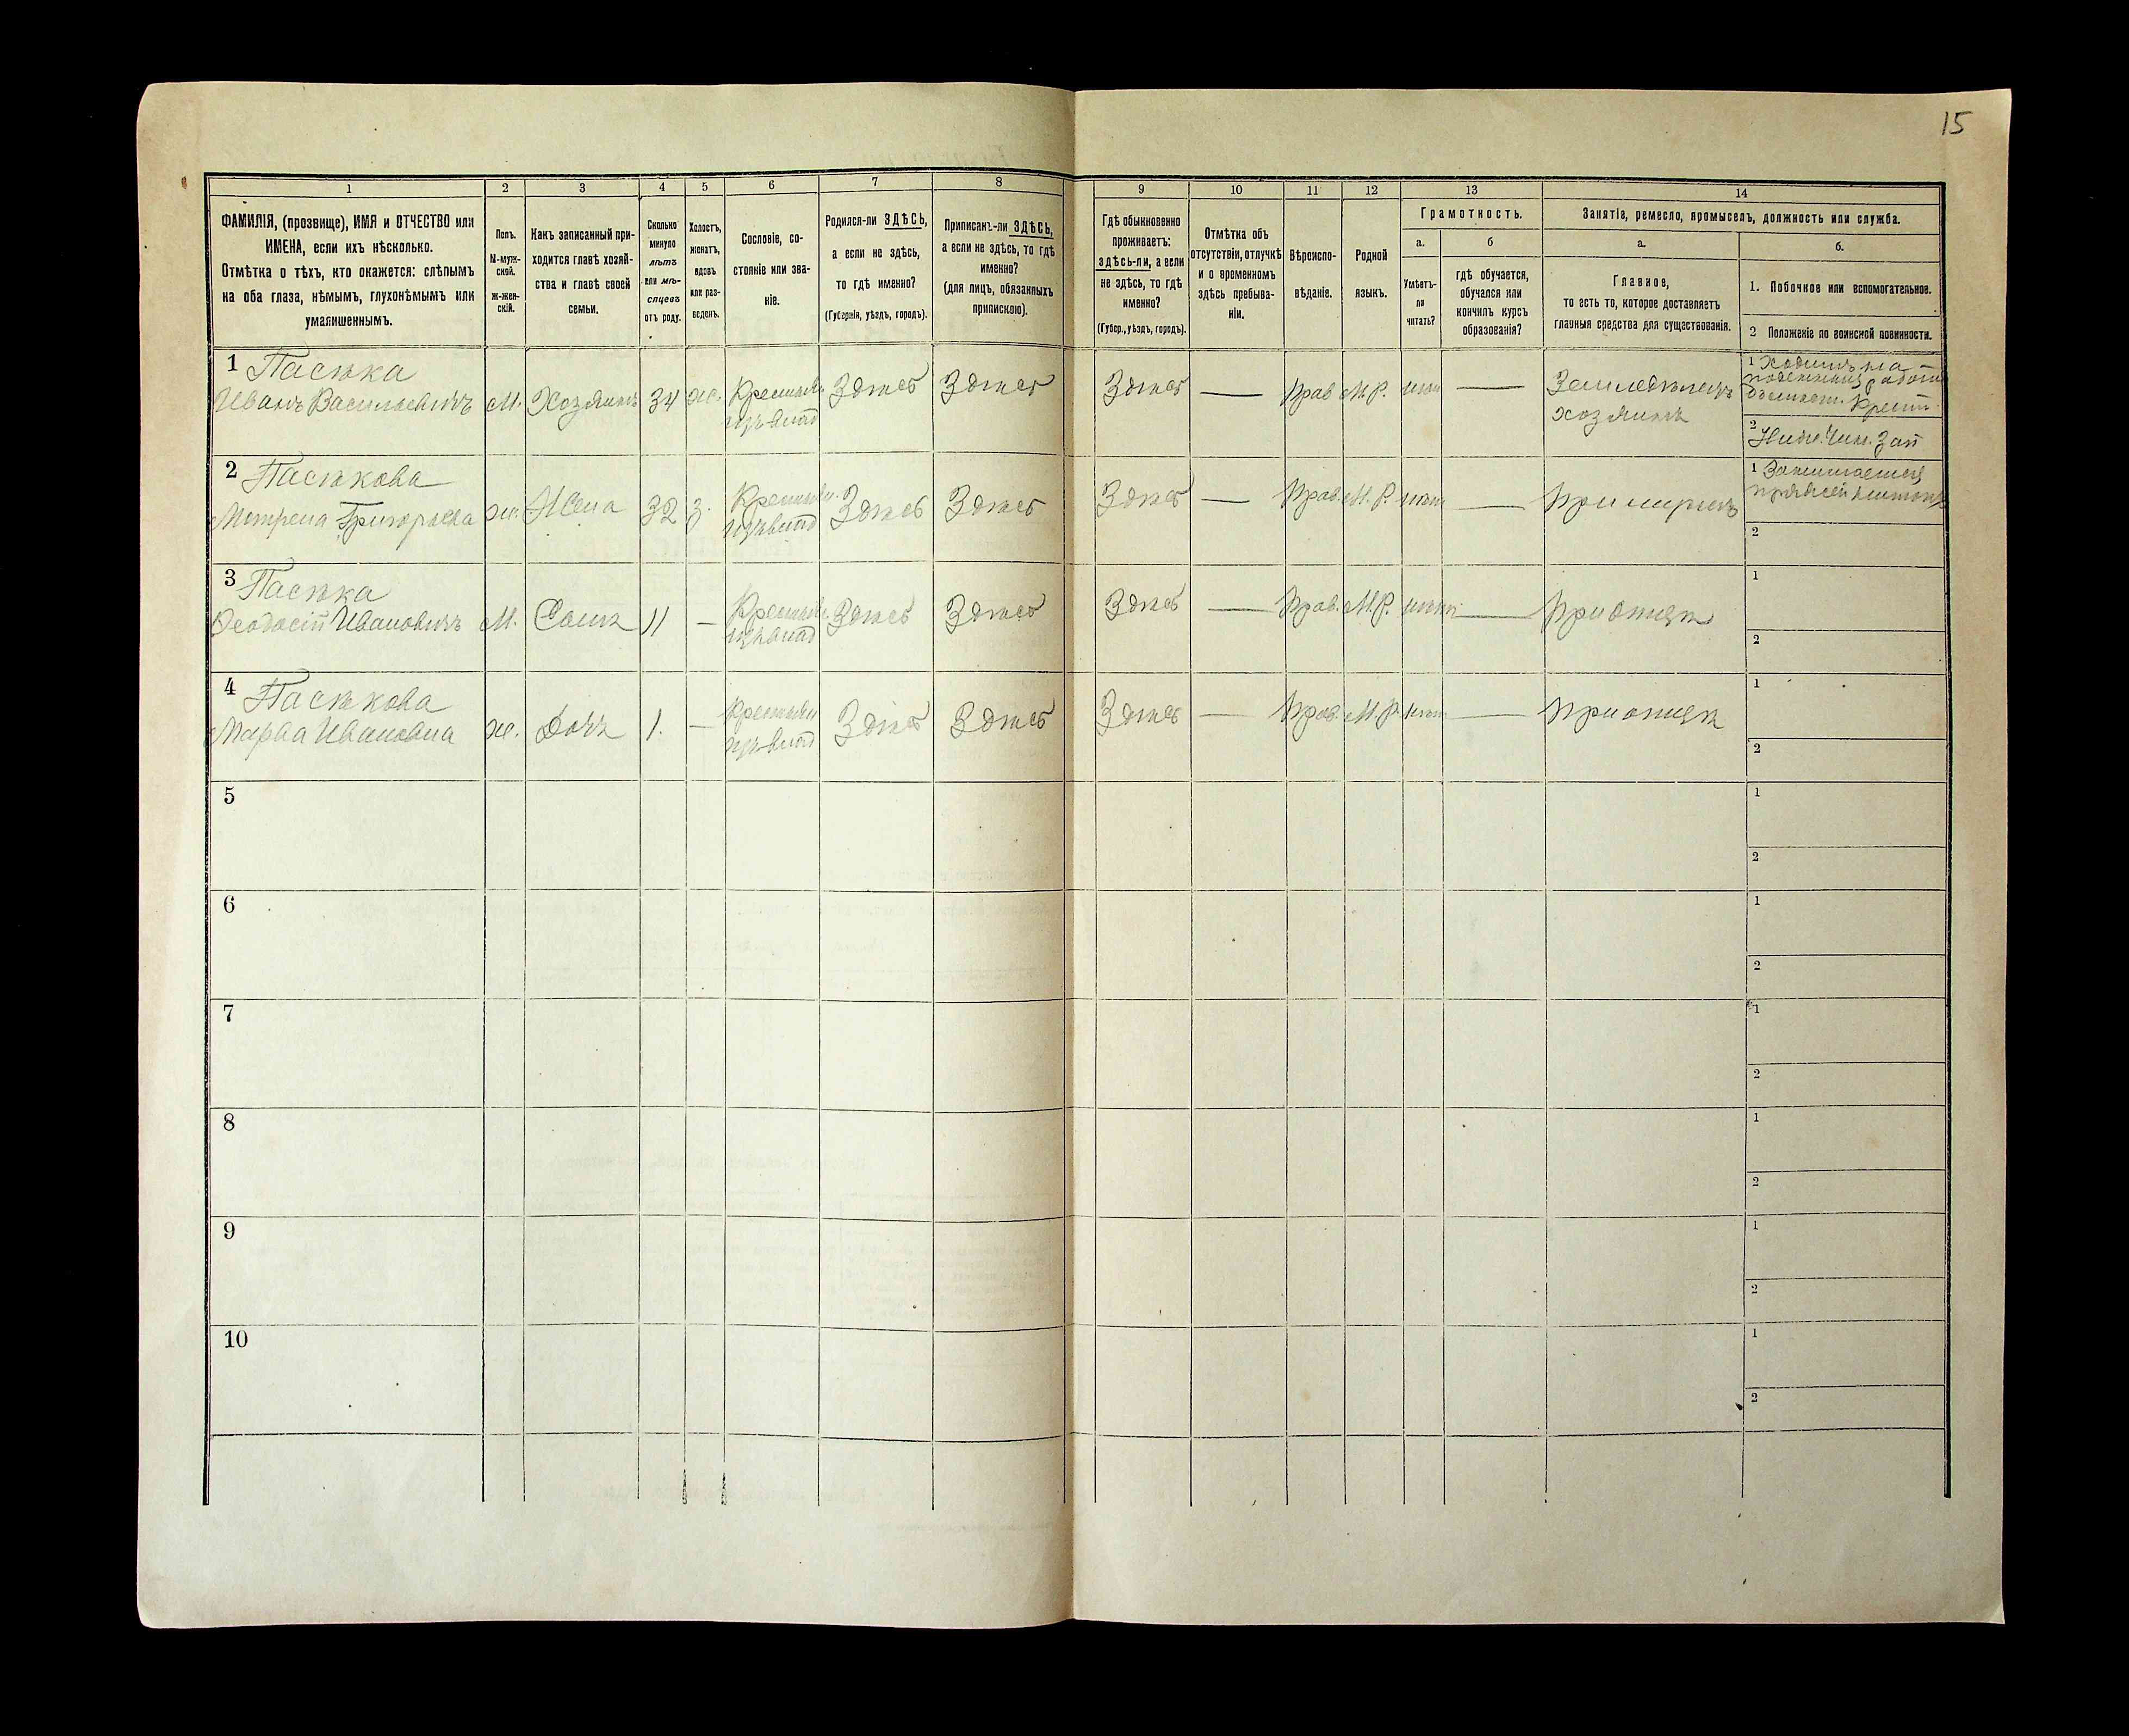 15
1
2
3
4
5
6
7
8
9
10
11
12
13
14
ФАМИЛІЯ, (прозвище), ИМЯ и ОТЧЕСТВО или
ИМЕНА, если ихъ нѣсколько.
Отмѣтка о тѣхъ, кто окажется: слѣпымъ
на оба глаза, нѣмымъ, глухонѣмымъ или
умалишеннымъ.
Полъ.
М-муж-
ской.
Ж-жен-
скій.
Какъ записанный при-
ходится главѣ хозяй-
ства и главѣ своей
семьи.
Сколько
минуло
лѣтъ
или мѣ-
сяцевъ
отъ роду.
Холостъ,
женатъ,
вдовъ
или раз-
веденъ.
Сословіе, со-
стояніе или зва-
ніе.
Родился-ли ЗДѢСЬ,
а если не здѣсь,
то гдѣ именно?
(Губернія, уѣздъ, городъ).
Приписанъ-ли ЗДѢСЬ,
а если не здѣсь, то гдѣ
именно?
(для лицъ, обязанныхъ
припискою).
Гдѣ обыкновенно
проживаетъ:
здѣсь-ли, а если
не здѣсь, то гдѣ
именно?
(Губер., уѣздъ, городъ).
Отмѣтка объ
отсутствіи, отлучкѣ
и о временномъ
здѣсь пребыва-
ніи.
Вѣроиспо-
вѣданіе.
Родной
языкъ.
Грамотность.
а.
Умѣетъ-
ли
читать?
б
гдѣ обучается,
обучался или
кончилъ курсъ
образованія?
Занятіе, ремесло, промыселъ, должность или служба.
а.
Главное,
то есть то, которое доставляетъ
главныя средства для существованія.
б.
1. Побочное или вспомогательное.
2 Положеніе по воинской повинности.
1 Пасѣка
Иванъ Васильевичъ
М.
Хозяинъ
34
ж.
Крестьян.
изъ влад
Здѣсь
Здѣсь
Здѣсь
—
Прав
М.Р.
нѣт
—
Земледѣлецъ
хозяинъ
1 Ходитъ на
поденныя работ
Крест.
2
Ниж. Чин. Зап
2 Пасѣкова
Мотрена Григорьева
ж.
Жена
32
З.
Крестьян.
изъ влад
Здѣсь
Здѣсь
Здѣсь
—
Прав.
М.Р.
нѣт
—
При мужѣ
1 Занимается
пряжей
2
3 Пасѣка
Феодосій Ивановичъ
М.
Сынъ
11
—
Крестьян.
изъ влад
Здѣсь
Здѣсь
Здѣсь
—
Прав.
М.Р.
нѣт
—
При отцѣ
1
2
4 Пасѣкова
Марѳа Ивановна
ж.
Дочь
1.
—
Крестьян
изъ влад
Здѣсь
Здѣсь
Здѣсь
—
Прав.
М.Р.
нѣт
—
При отцѣ
1
2
5
1
2
6
1
2
7
1
2
8
1
2
9
1
2
10
1
2